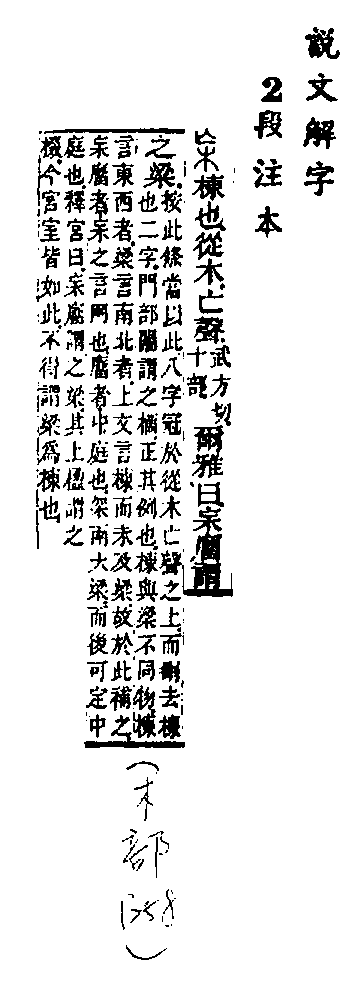 説文解字
2段注本
杗棟也。從木。亡聲。武方切十部爾雅曰。杗廇謂
之梁。按此條當以此八字冠於從木亡聲之上。而刪去棟
也二字。門部闑謂之樀。正其例也。棟與梁不同物。棟
言東西者。梁言南北者。上文言棟而未及梁。故於此補之。
杗廇者。杗之言网也。廇者中庭也。架兩大梁。而後可定中
庭也。釋宮曰。杗廇謂之梁。其上楹謂之
棳。今宮室皆如此。不得謂梁爲棟也
(木部